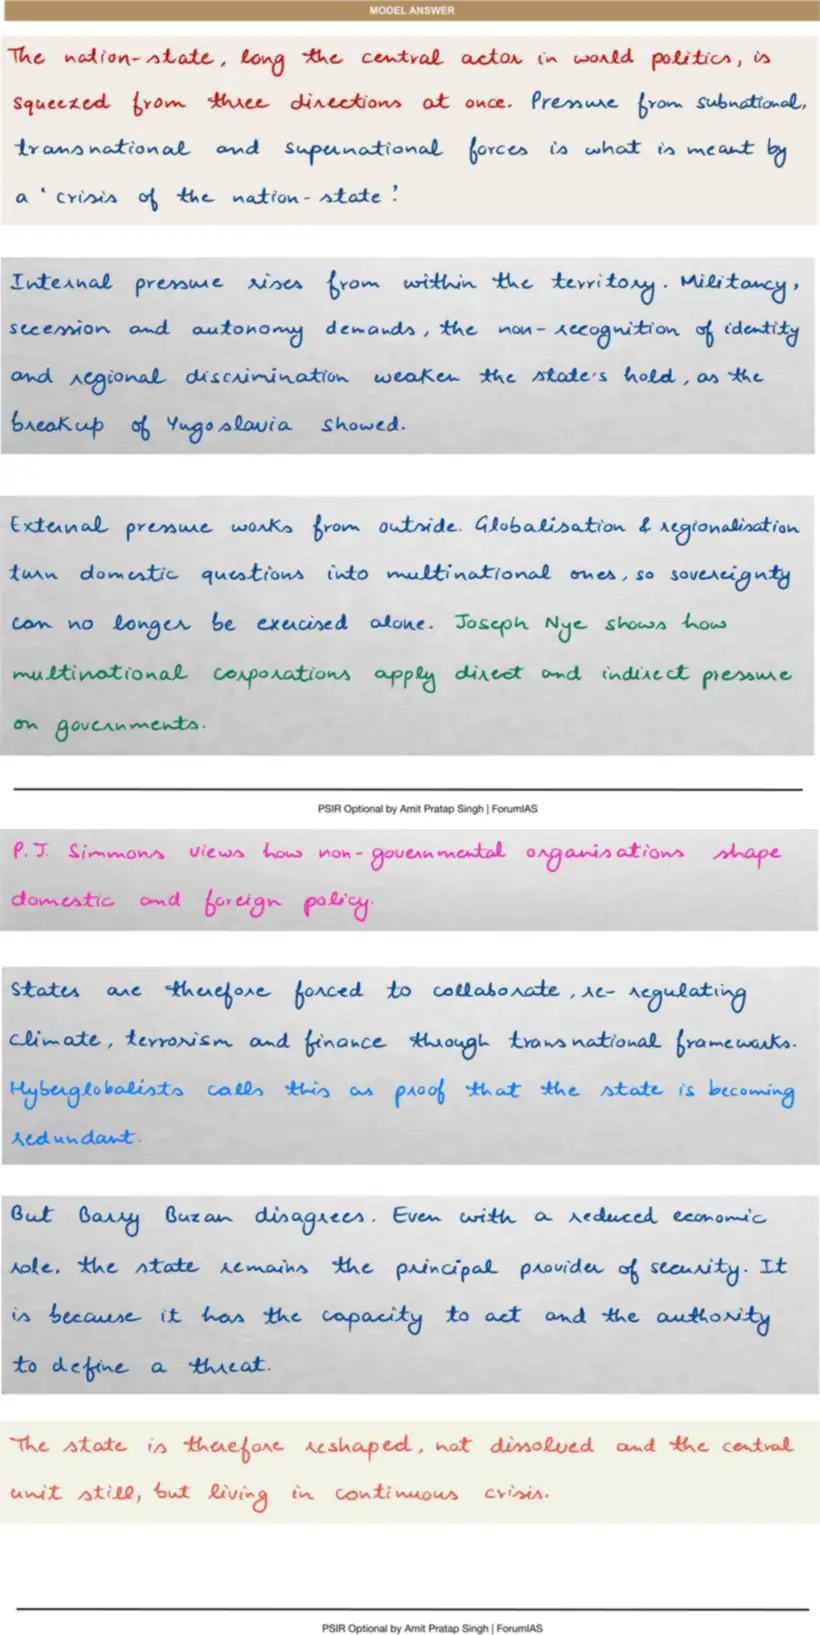 MODEL ANSWER
The nation-state, long the central actor in world politics, is
squeezed from three directions at once. Pressure from subnational,
transnational and supernational forces is what is meant by
a 'crisis of the nation-state'.
Internal pressure rises from within the territory. Militancy,
secession and autonomy demands, the non-recognition of identity
and regional discrimination weaken the state's hold, as the
breakup of Yugoslavia showed.
External pressure works from outside. Globalisation & regionalisation
turn domestic questions into multinational ones, so sovereignty
can no longer be exercised alone. Joseph Nye shows how
multinational corporations apply direct and indirect pressure
on governments.
PSIR Optional by Amit Pratap Singh | ForumIAS
P.J. Simmons views how non-governmental organisations shape
domestic and foreign policy.
States are therefore forced to collaborate, re-regulating
climate, terrorism and finance through transnational frameworks.
Hyberglobalists calls this as proof that the state is becoming
redundant.
But Barry Buzan disagrees. Even with a reduced economic
role, the state remains the principal provider of security. It
is because it has the capacity to act and the authority
to define a threat.
The state is therefore reshaped, not dissolved and the central
unit still, but living in continuous crisis.
PSIR Optional by Amit Pratap Singh | ForumIAS